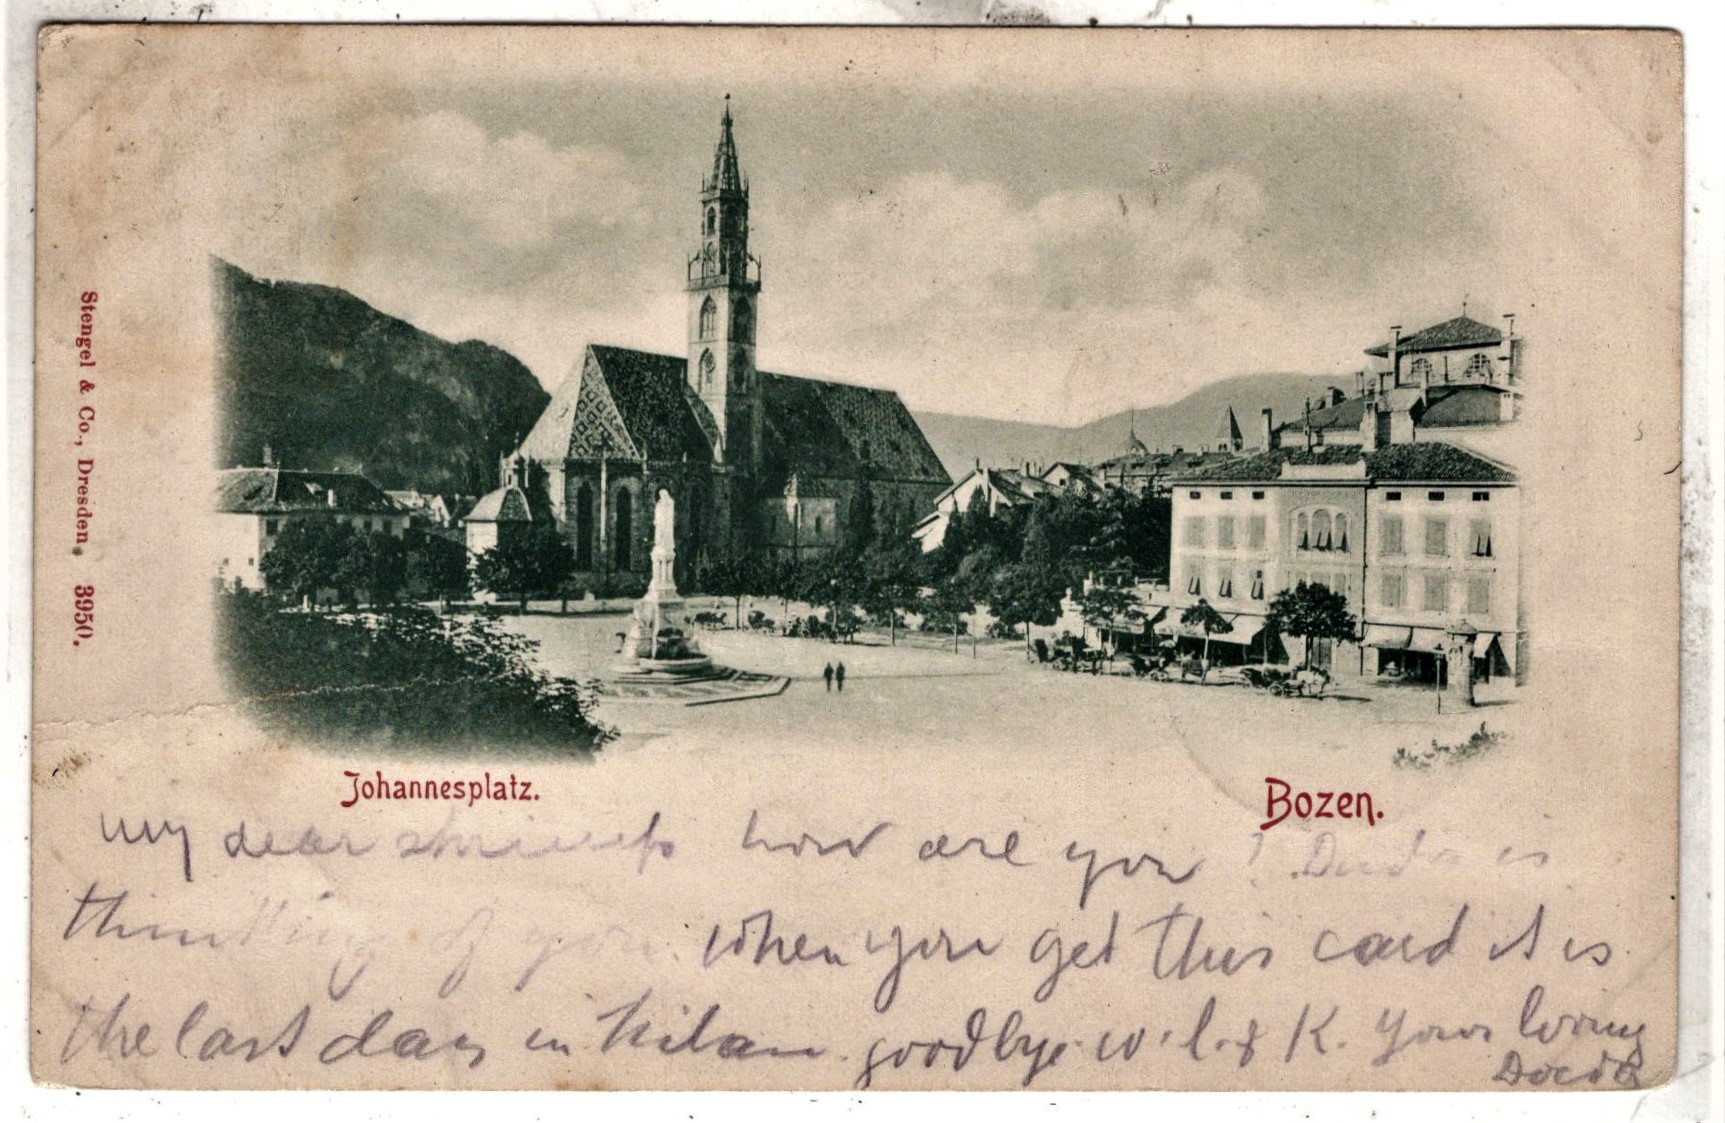 Stengel & Co., Dresden. 3950.
Johannesplatz. Bozen.
my dear how are you? is
thinking of you. when you get this card it is
the last day in goodbye w. l. & K. Your loving